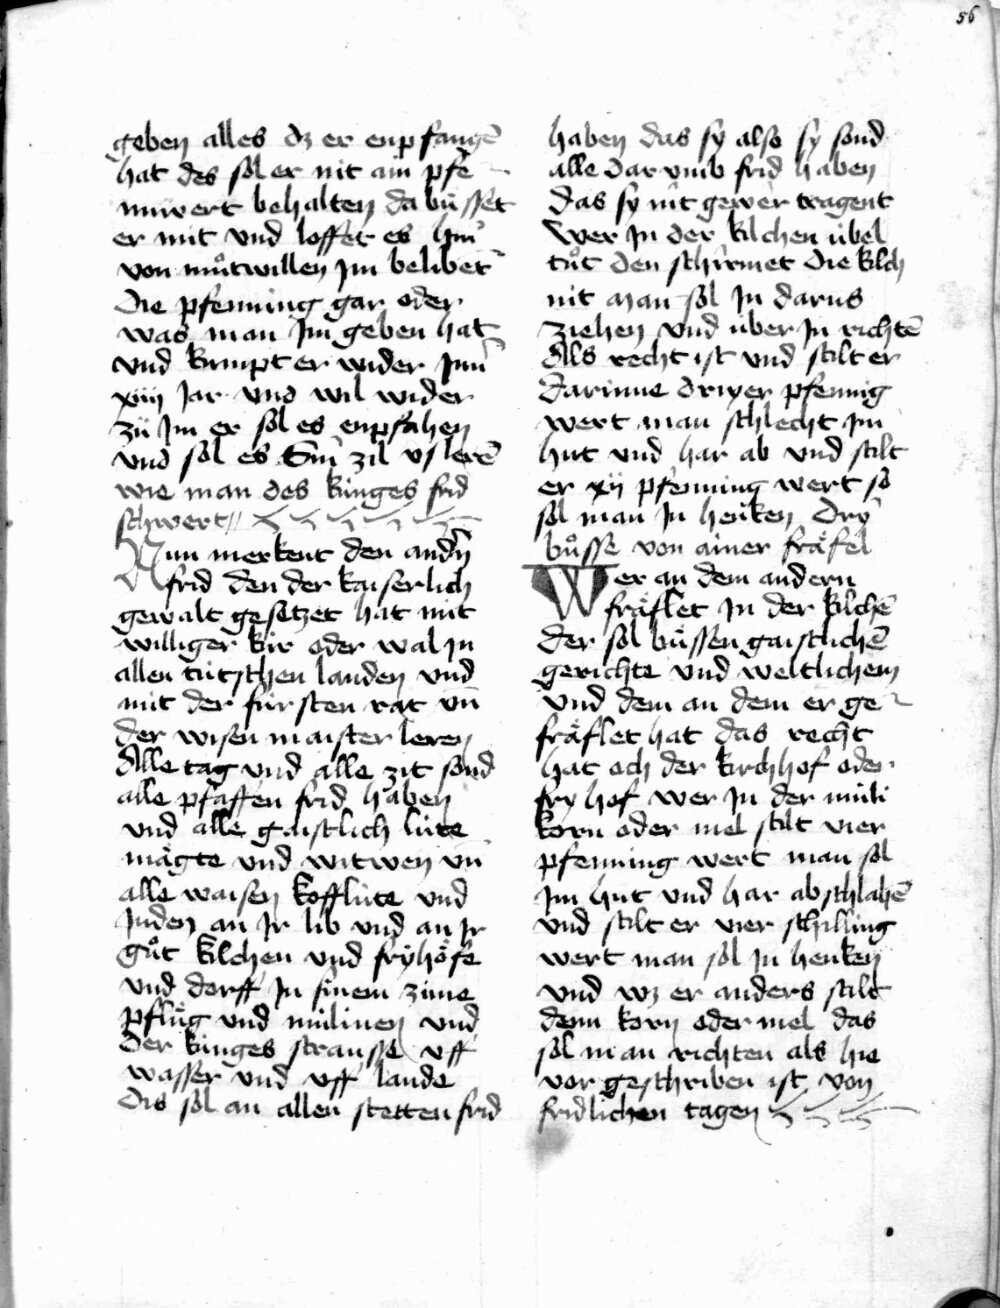 56
geben alles dz er enpfangē
hat des sol er nit ain pfe
nnwert behalten da büsset
er mit vnd loffet es hin
von můtwillen jm belibet
die pfenning gar oder
was man jm geben hat
vnd kumpt er wider jnn
xiiij jar vnd wil wider
zü jm er sol es enpfahen
vnd sol es sin zil vs lerē
wie man des kunges frid
schwert
Nun merkent den andn̄
frid den der kaiserlich
gewalt gesetzet hat mit
williger kür oder wal jn
allen tütschen landen vnd
mit der fürsten rat vn̄
der wisen maister leren
Alle tag vnd alle zit sönd
alle pfaffen frid haben
vnd alle gaistlich lüte
mägte vnd witwen vn̄
alle waisen kofflüte vnd
juden an jr lib vnd an jr
gůt kilchen vnd fryhöfe
vnd dorff jn sinem zune
pflüg vnd mülinen vnd
der kunges strausse vff
wasser vnd vff lande
dis sol an allen stetten frid
haben das sy also sy sond
alle dar vmb frid haben
das sy nit gewer tragent
wer jn der kilchen übel
tůt den schirmet die kilch
nit man sol jn darus
ziehen vnd über jn richtē
Als recht ist vnd stilt er
darinne dryer pfennig
wert man schlecht jm
hut vnd har ab vnd stilt
er xij pfenning wert so
sol man jn henken dry
bůsse von ainer fräfel
Wer an dem andern
fräflet jn der kilchē
der sol büssen gaistlichē
gerichte vnd weltlichem
vnd dem an dem er ge
fräflet hat das recht
hat och der kirchhof oder
fry hof wer jn der müli
korn oder mel stilt vier
pfenning wert man sol
jm hut vnd har abschlahē
vnd stilt er vier schilling
wert man sol jn henken
vnd wz er anders stilt
denn korn oder mel das
sol man richten als hie
vor geschriben ist von
fridlichen tagen